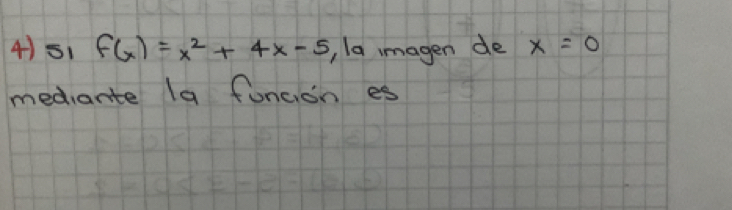 4) Si f(x) = x² + 4x - 5, la imagen de x = 0
mediante la función es